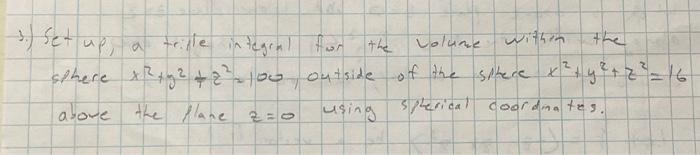 3.) Set up, a triple integral for the volume within the
sphere x²+y²+z²=100, outside of the sphere x²+y²+z²=16
above the plane z=0 using spherical coordinates.